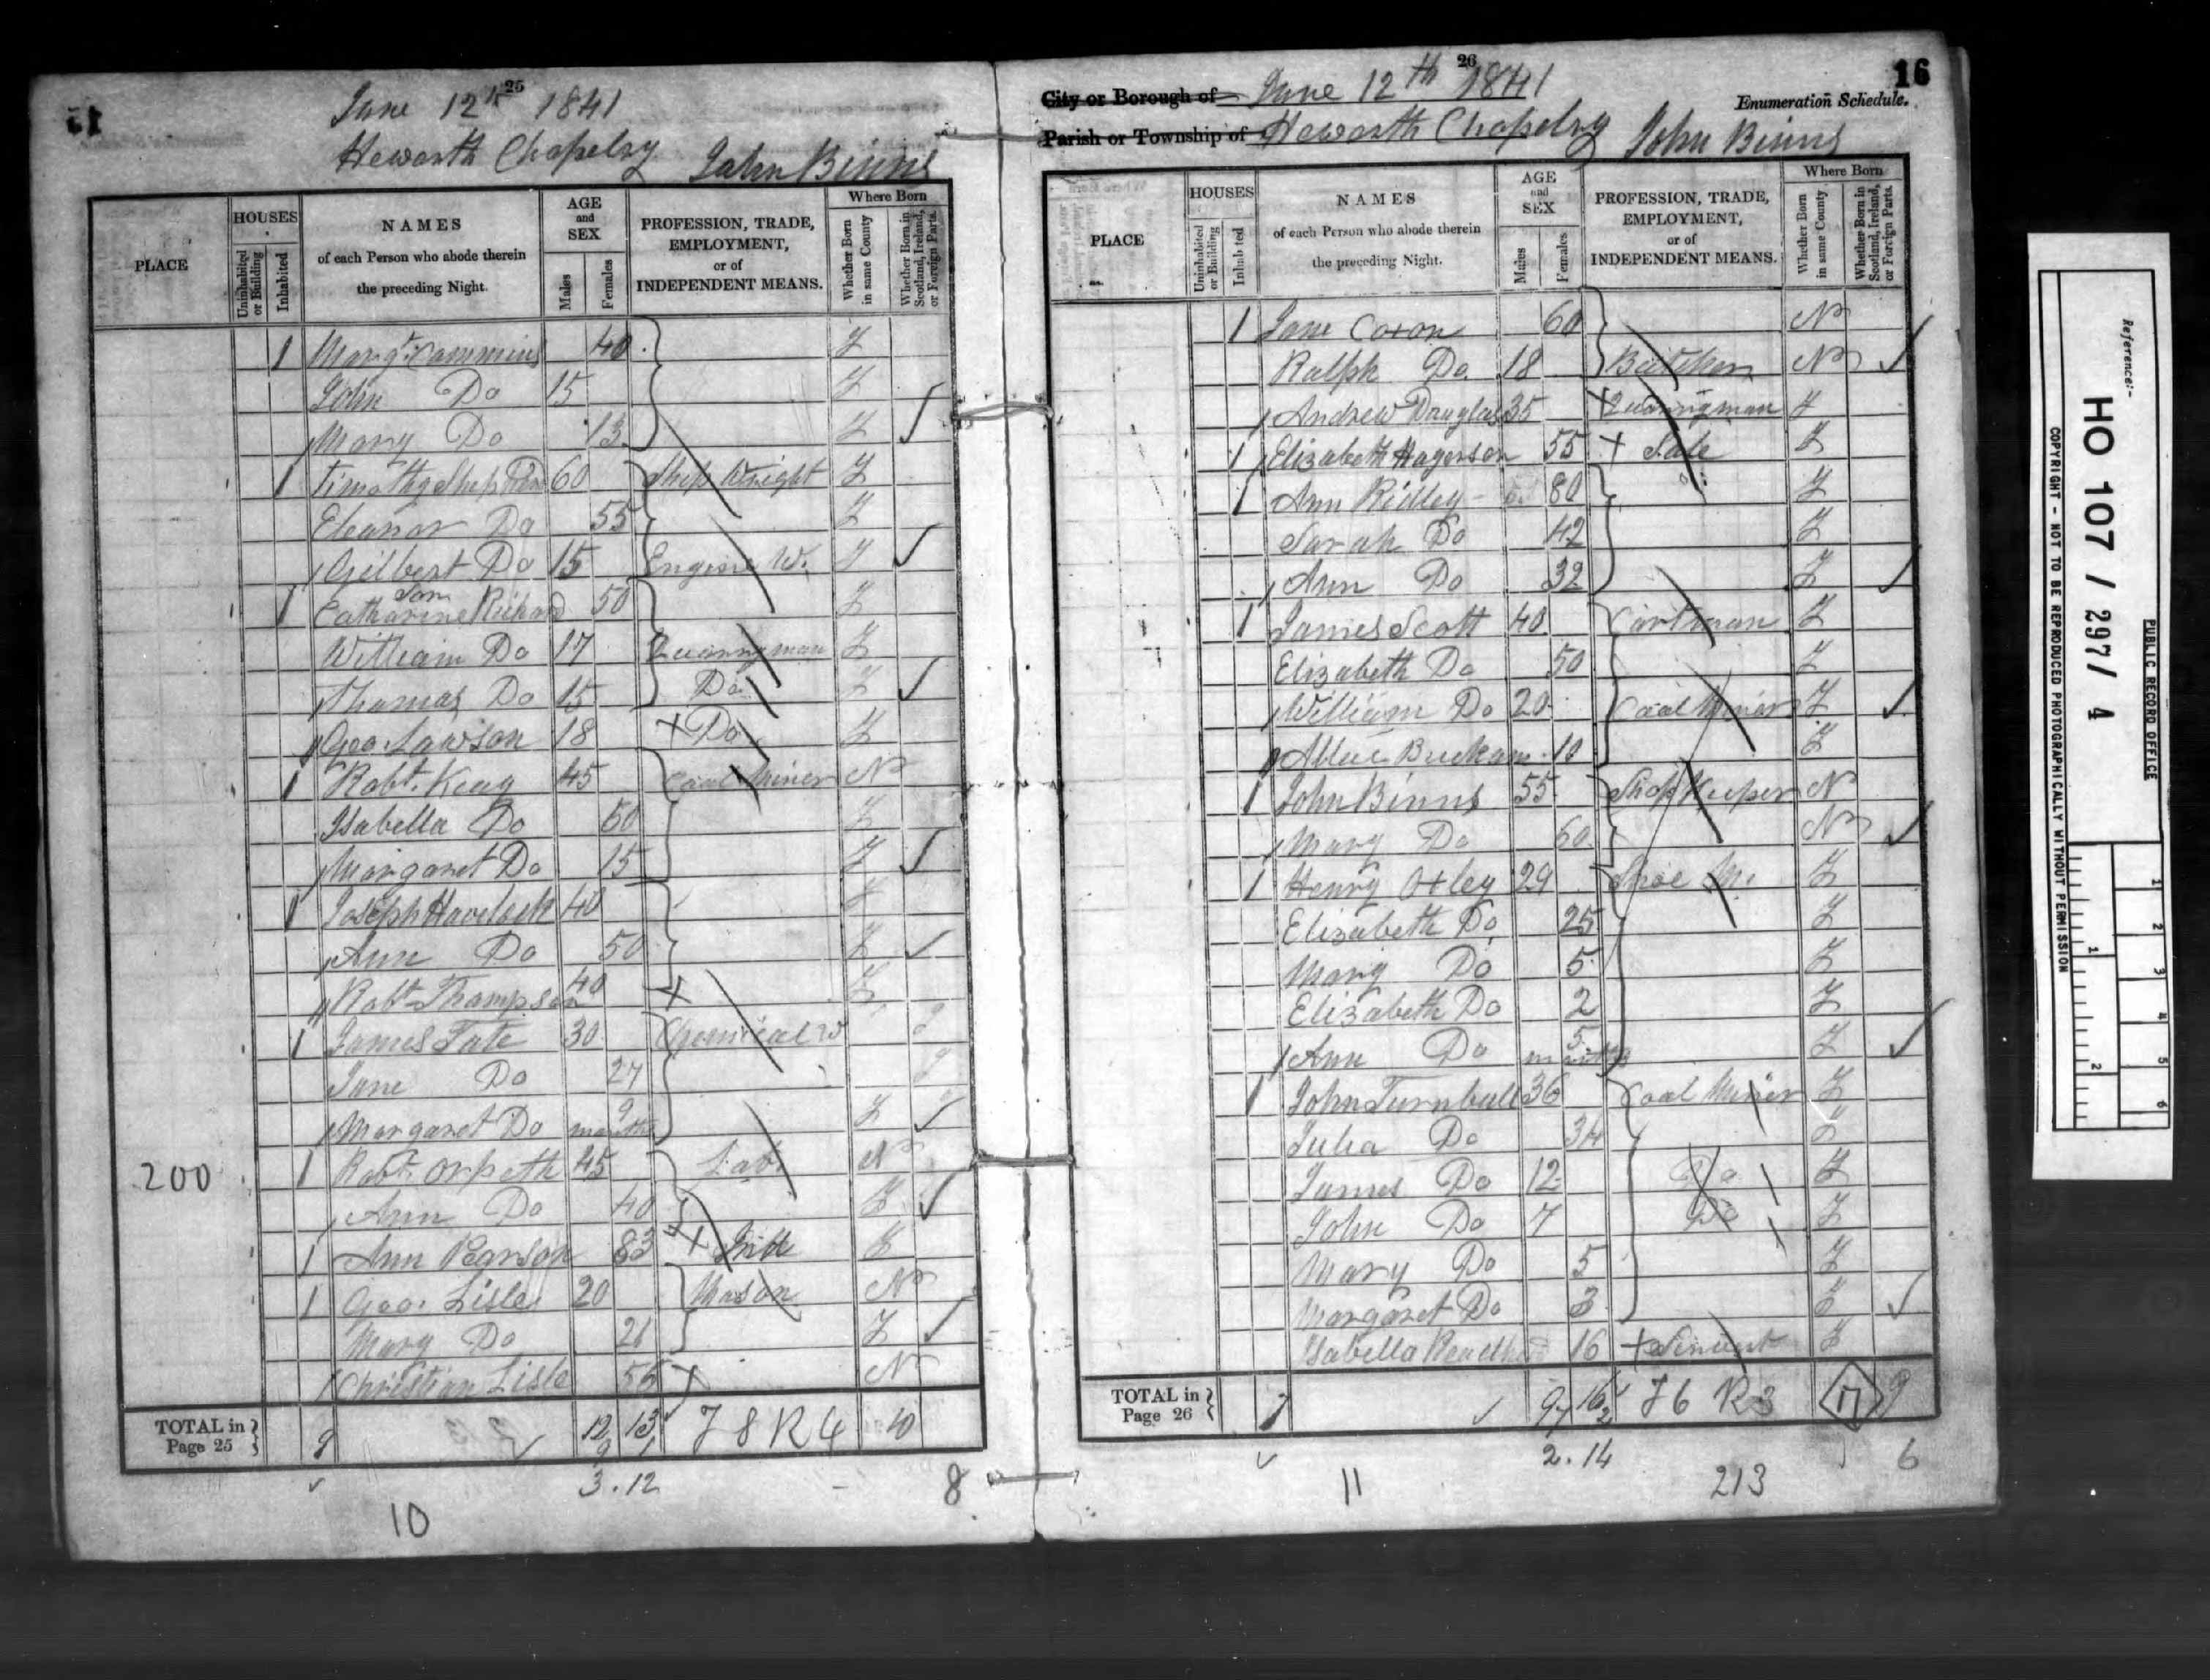 25
June 12th 1841
Heworth Chapelry John Binns
PLACE
HOUSES
Uninhabited or Building
Inhabited
NAMES
of each Person who abode therein
the preceding Night.
AGE
and
SEX
Males
Females
PROFESSION, TRADE,
EMPLOYMENT,
or of
INDEPENDENT MEANS.
Where Born
Whether Born in same County
Whether Born in Scotland, Ireland, or Foreign Parts.
1 Margt Cammins 40 Y
John Do 15 Y
Mary Do 13 Y
1 Timothy 60 Ship Wright Y
Eleanor Do 55 Y
Gilbert Do 15 Engine W. Y
1 Catharine Richardson 50 Y
William Do 17 Quarryman Y
Thomas Do 15 Do Y
Geo. Lawson 18 + Do Y
1 Robt. Keay 45 Coal Miner N
Isabella Do 60 Y
Margaret Do 15 Y
1 Joseph Havelock 40 Y
Ann Do 50 Y
Robt Thompson 40 + Y
1 James Tate 30 Chemical W
Jane Do 27
Margaret Do 9 months Y
200
1 Robt Orpeth 45 Lab. N
Ann Do 40 Y
1 Ann Pearson 83 + Ind Y
1 Geo. Lisle 20 Mason N
Mary Do 26 Y
Christian Lisle 55 + N
TOTAL in
Page 25
12 13 J 8 R 4 10
3 . 12
10 8
26
16
City or Borough of June 12th 1841
Enumeration Schedule.
Parish or Township of Heworth Chapelry John Binns
PLACE
HOUSES
Uninhabited or Building
Inhabited
NAMES
of each Person who abode therein
the preceding Night.
AGE
and
SEX
Males
Females
PROFESSION, TRADE,
EMPLOYMENT,
or of
INDEPENDENT MEANS.
Where Born
Whether Born in same County
Whether Born in Scotland, Ireland, or Foreign Parts.
1 Jane Coxon 60 N
Ralph Do 18 Butcher N
Andrew Douglas 35 + Quarryman Y
1 Elizabeth Hagerson 55 + Y
1 Ann Ridley 80 Y
Sarah Do 42 Y
Ann Do 32 Y
1 James Scott 40 Cartman Y
Elizabeth Do 50 Y
William Do 20 Coal Miner Y
10 Y
1 John Binns 55 Shop Keeper N
Mary Do 60 N
1 Henry Oxley 29 Shoe M. Y
Elizabeth Do 25 Y
Mary Do 5 Y
Elizabeth Do 2 Y
Ann Do 5 months Y
1 John Turnbull 36 Coal Miner Y
Julia Do 34 Y
James Do 12 Do Y
John Do 7 Do Y
Mary Do 5 Y
Margaret Do 3 Y
Isabella 16 + Y
TOTAL in
Page 26
7 9 16 J 6 R 3 17 9
2 . 14 6
11 213
Reference:-
HO 107 / 297 / 4
PUBLIC RECORD OFFICE
COPYRIGHT - NOT TO BE REPRODUCED PHOTOGRAPHICALLY WITHOUT PERMISSION
1
2
3
4
5
6
1
2